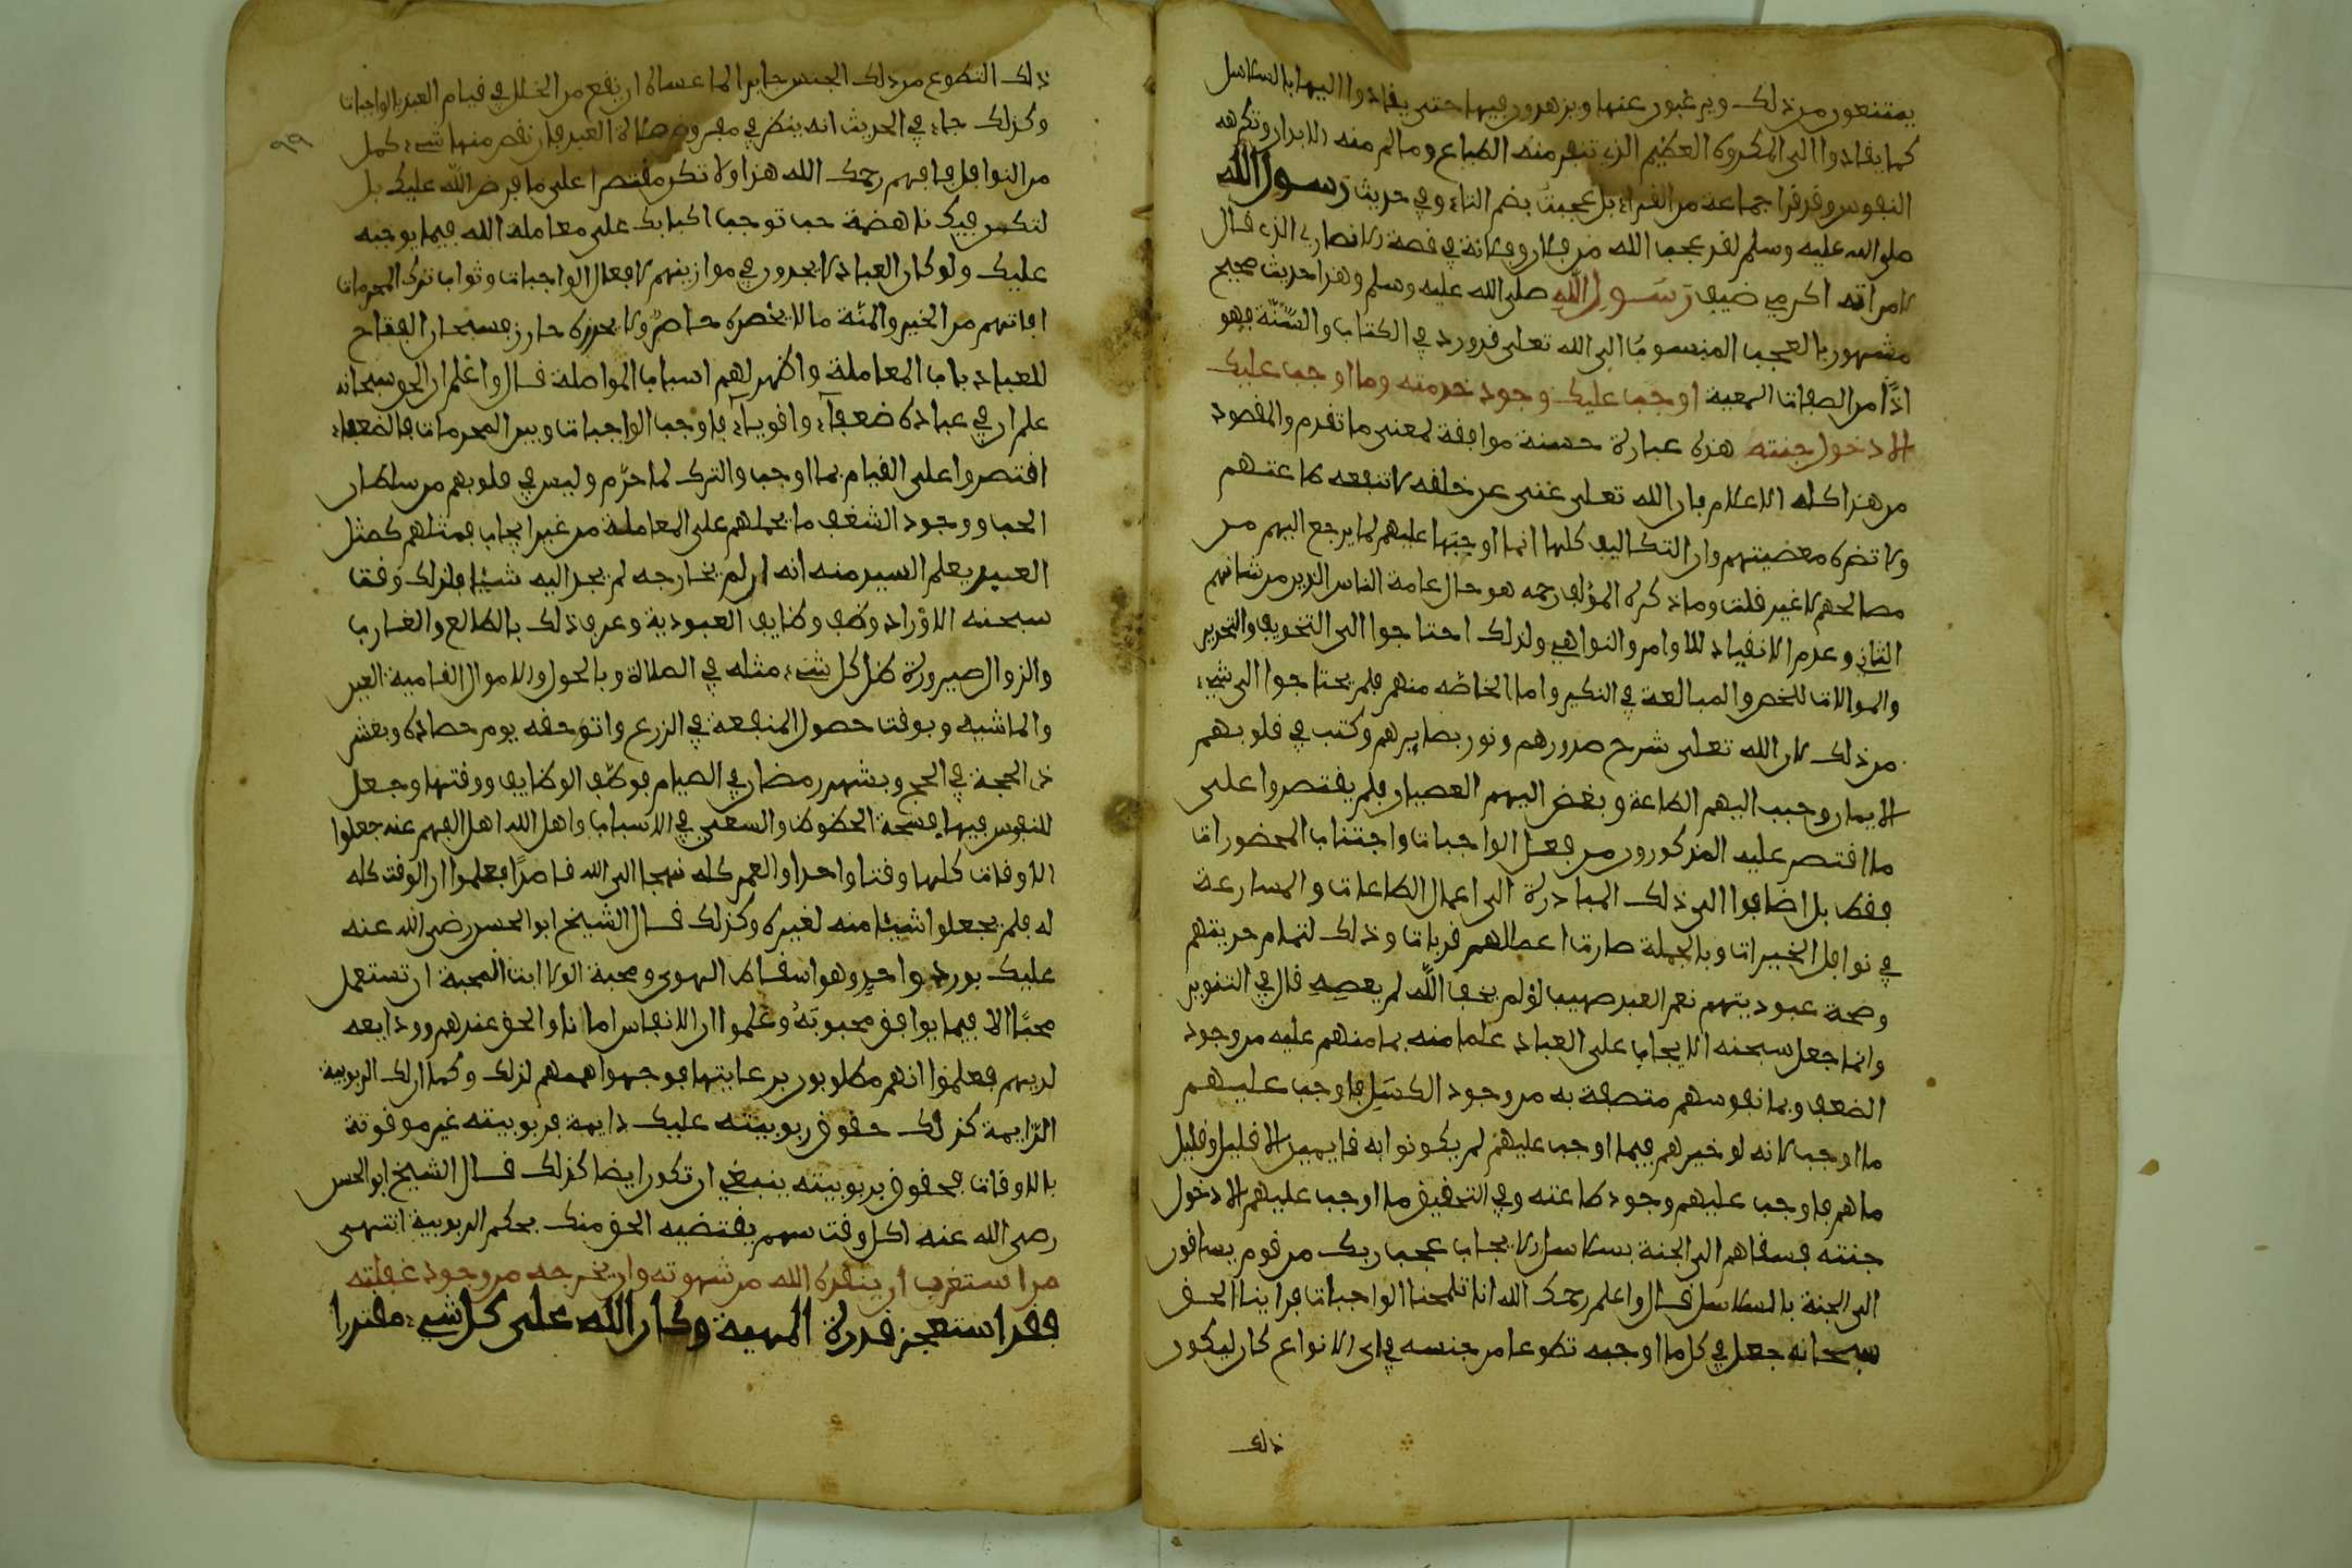 يمتنعون من ذلك ويرغبون عنها ويزهدون فيها حتى يقادوا اليها بالسلاسل
كما يقادوا الى المكروه العظيم الذي تنفر منه الطباع وتالم منه الابدان وتكرهه
النفوس وقد قرا جماعة من القراء بل عجبت بضم التاء وفي حديث رسول الله
صلى الله عليه وسلم لقد عجب الله من فلان وفلانة في قصة الانصاري الذي قال
لامراته اكرمي ضيف رسول الله صلى الله عليه وسلم وهذا حديث صحيح
مشهور بالعجب المنسوب الى الله تعلى قد ورد في الكتاب والسنة فهو
اذا من الصفات السمعية اوجب عليك وجود خدمته وما اوجب عليك
الا دخول جنته هذه عبارة حسنة موافقة لمعنى ما تقدم والمقصود
من هذا كله الاعلام بان الله تعلى غني عن خلقه لا تنفعه طاعتهم
ولا تضره معصيتهم وان التكاليف كلها انما اوجبها عليهم لما يرجع اليهم من
مصالحهم لا غير قلت وما ذكره المؤلف رحمه هو حال عامة الناس الذين من شانهم
التاني وعدم الانقياد للاوامر والنواهي ولذلك احتاجوا الى التخويف والتحذير
والموالات للحض والمبالغة في النكير واما الخاصه منهم فلم يحتاجوا الى شيء
من ذلك لان الله تعلى شرح صدورهم ونور بصايرهم وكتب في قلوبهم
الايمان وحبب اليهم الطاعة وبغض اليهم العصيان فلم يقتصروا على
ما اقتصر عليه المذكورون من فعل الواجبات واجتناب المحضورات
فقط بل اضافوا الى ذلك المبادرة الى اعمال الطاعات والمسارعة
في نوافل الخيرات وبالجملة صارت اعمالهم قربات وذلك لتمام حريتهم
وصحة عبوديتهم نعم العبد صهيب لو لم يخف الله لم يعصه قال في التنوير
وانما جعل سبحنه الايجاب على العباد علما منه بما منهم عليه من وجود
الضعف وبما نفوسهم متصفة به من وجود الكسل فاوجب عليهم
ما اوجب لانه لو خيرهم فيما اوجب عليهم لم يكونوا به قايمين الا قليل وقليل
ما هم فاوجب عليهم وجود طاعته وفي التحقيق ما اوجب عليهم الا دخول
جنته فساقهم الى الجنة بسلاسل الايجاب عجب ربك من قوم يساقون
الى الجنة بالسلاسل قال واعلم رحمك الله انا تلمحنا الواجبات فراينا الحق
سبحانه جعل في كل ما اوجبه تطوعا من جنسه في اي الانواع كان ليكون
ذلك
ذلك التطوع من ذلك الجنس جابرا لما عساه ان يقع من الخلل في قيام العبد بالواجبات
وكذلك جاء في الحديث انه ينظر في مفروض صلاة العبد فان نقص منها شيء كمل
من النوافل فافهم رحمك الله هذا ولا تكن مقتصرا على ما فرض الله عليك بل
لتكن فيك ناهضة حب توجب اكبابك على معاملة الله فيما يوجبه
عليك ولو كان العباد لا يجدون في موازينهم الا فعل الواجبات وثواب ترك المحرمات
لفاتهم من الخير والمنة ما لا يحصره حاصر ولا يحزره حازر فسبحان الفتاح
للعباد باب المعاملة واظهر لهم اسباب المواصلة قال واعلم ان الحق سبحانه
علم ان في عباده ضعفاء واقوياء فاوجب الواجبات وبين المحرمات فالضعفاء
اقتصروا على القيام بما اوجب والترك لما حرم وليس في قلوبهم من سلطان
الحب ووجود الشغف ما يحملهم على المعاملة من غير ايجاب فمثلهم كمثل
العبيد يعلم السيد منه انه ان لم يخارجه لم يجد اليه شيئا فلذلك وقت
سبحنه الاوراد وظف وظايف العبودية وعرف ذلك بالطالع والغارب
والزوال صيرورة ظل كل شيء مثله في الصلاة وبالحول والاموال النامية العين
والماشية وبوقت حصول المنفعة في الزرع واتو حقه يوم حصاده وبعشر
ذي الحجة في الحج وبشهر رمضان في الصيام فوظف الوظايف ووقتها وجعل
للنفوس فيها فسحة الحظوظ والسعي في الاسباب واهل الله اهل الفهم عنه جعلوا
الاوقات كلها وقتا واحدا والعمر كله نهجا الى الله قاصدا فعلموا ان الوقت كله
له فلم يجعلوا شيئا منه لغيره وكذلك قال الشيخ ابو الحسن رضي الله عنه
عليك بورد واحد وهو اسقاط الهوى ومحبة المولى ابت المحبة ان تستعمل
محبا الا فيما يوافق محبوبه وعلموا ان الانفاس امانات الحق عندهم وودايعه
لديهم فعلموا انهم مطلوبون برعايتها فوجهوا هممهم لذلك وكما ان لك الربوبية
الدايمة كذلك حقوق ربوبيته عليك دايمة فربوبيته غير موقوتة
بالاوقات فحقوق ربوبيته ينبغي ان تكون ايضا كذلك قال الشيخ ابو الحسن
رضي الله عنه لكل وقت سهم يقتضيه الحق منك بحكم الربوبية انتهى
من استغرب ان ينقذه الله من شهوته وان يخرجه من وجود غفلته
فقد استعجز قدرة الهية وكان الله على كل شيء مقتدرا
٩٩